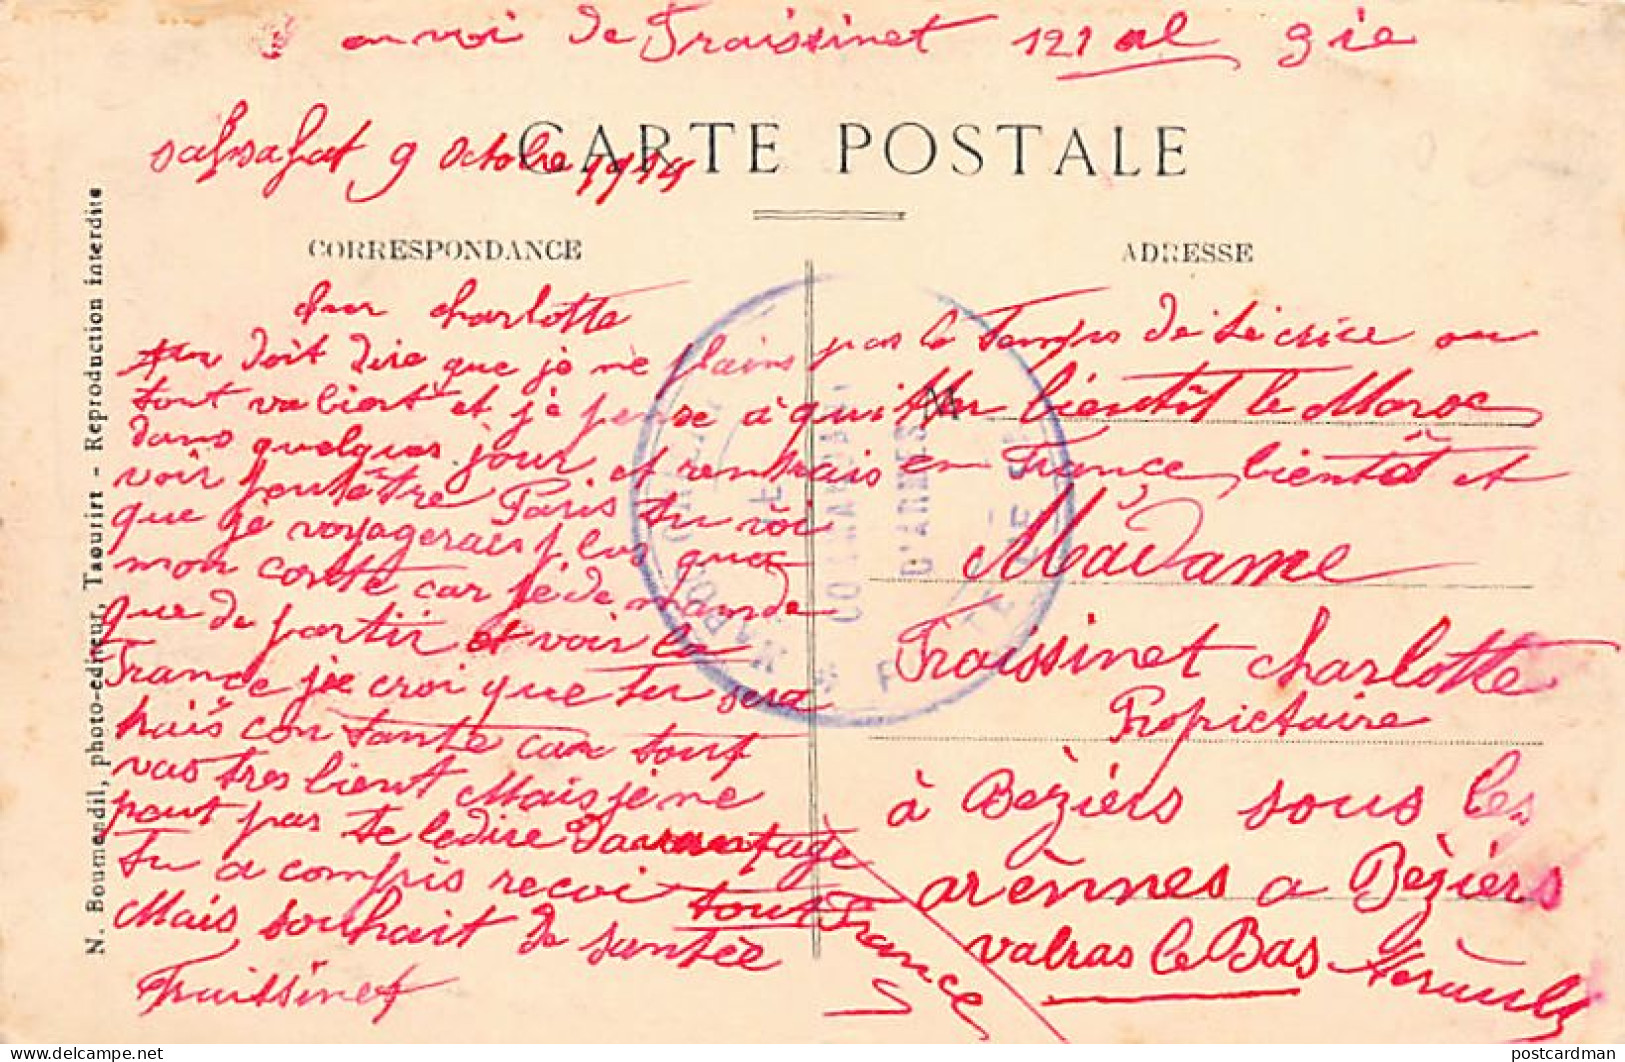 envoi de Fraissinet 121 al gie
Safsafat 9 octobre 1914
CARTE POSTALE
CORRESPONDANCE
ADRESSE
N. Boumendil, photo-editeur, Taourirt - Reproduction interdite
cher charlotte
doit dire que je ne plains pas le Temps de técrice ou
tout va bient et je pense à quitter bientît le Maroc
dans quelques jour et rentrais en France bientêt et
voir peutêtre Paris tu voi
que je voyagerais plus que
mon conte car je demande
que de partir et voir la
France je croi que tu sera
trais contante car tout
vas tres bient Mais je ne
peut pas te le dire davantage
tu a compris recoi tout
Mais souhait de santée
Fraissinet
France
Madame
Fraissinet charlotte
Propictaire
à Bèziérs sous les
arènnes a Bèziérs
valras le Bas Hérault
COMMANDANT
D'ARMES
postcardman